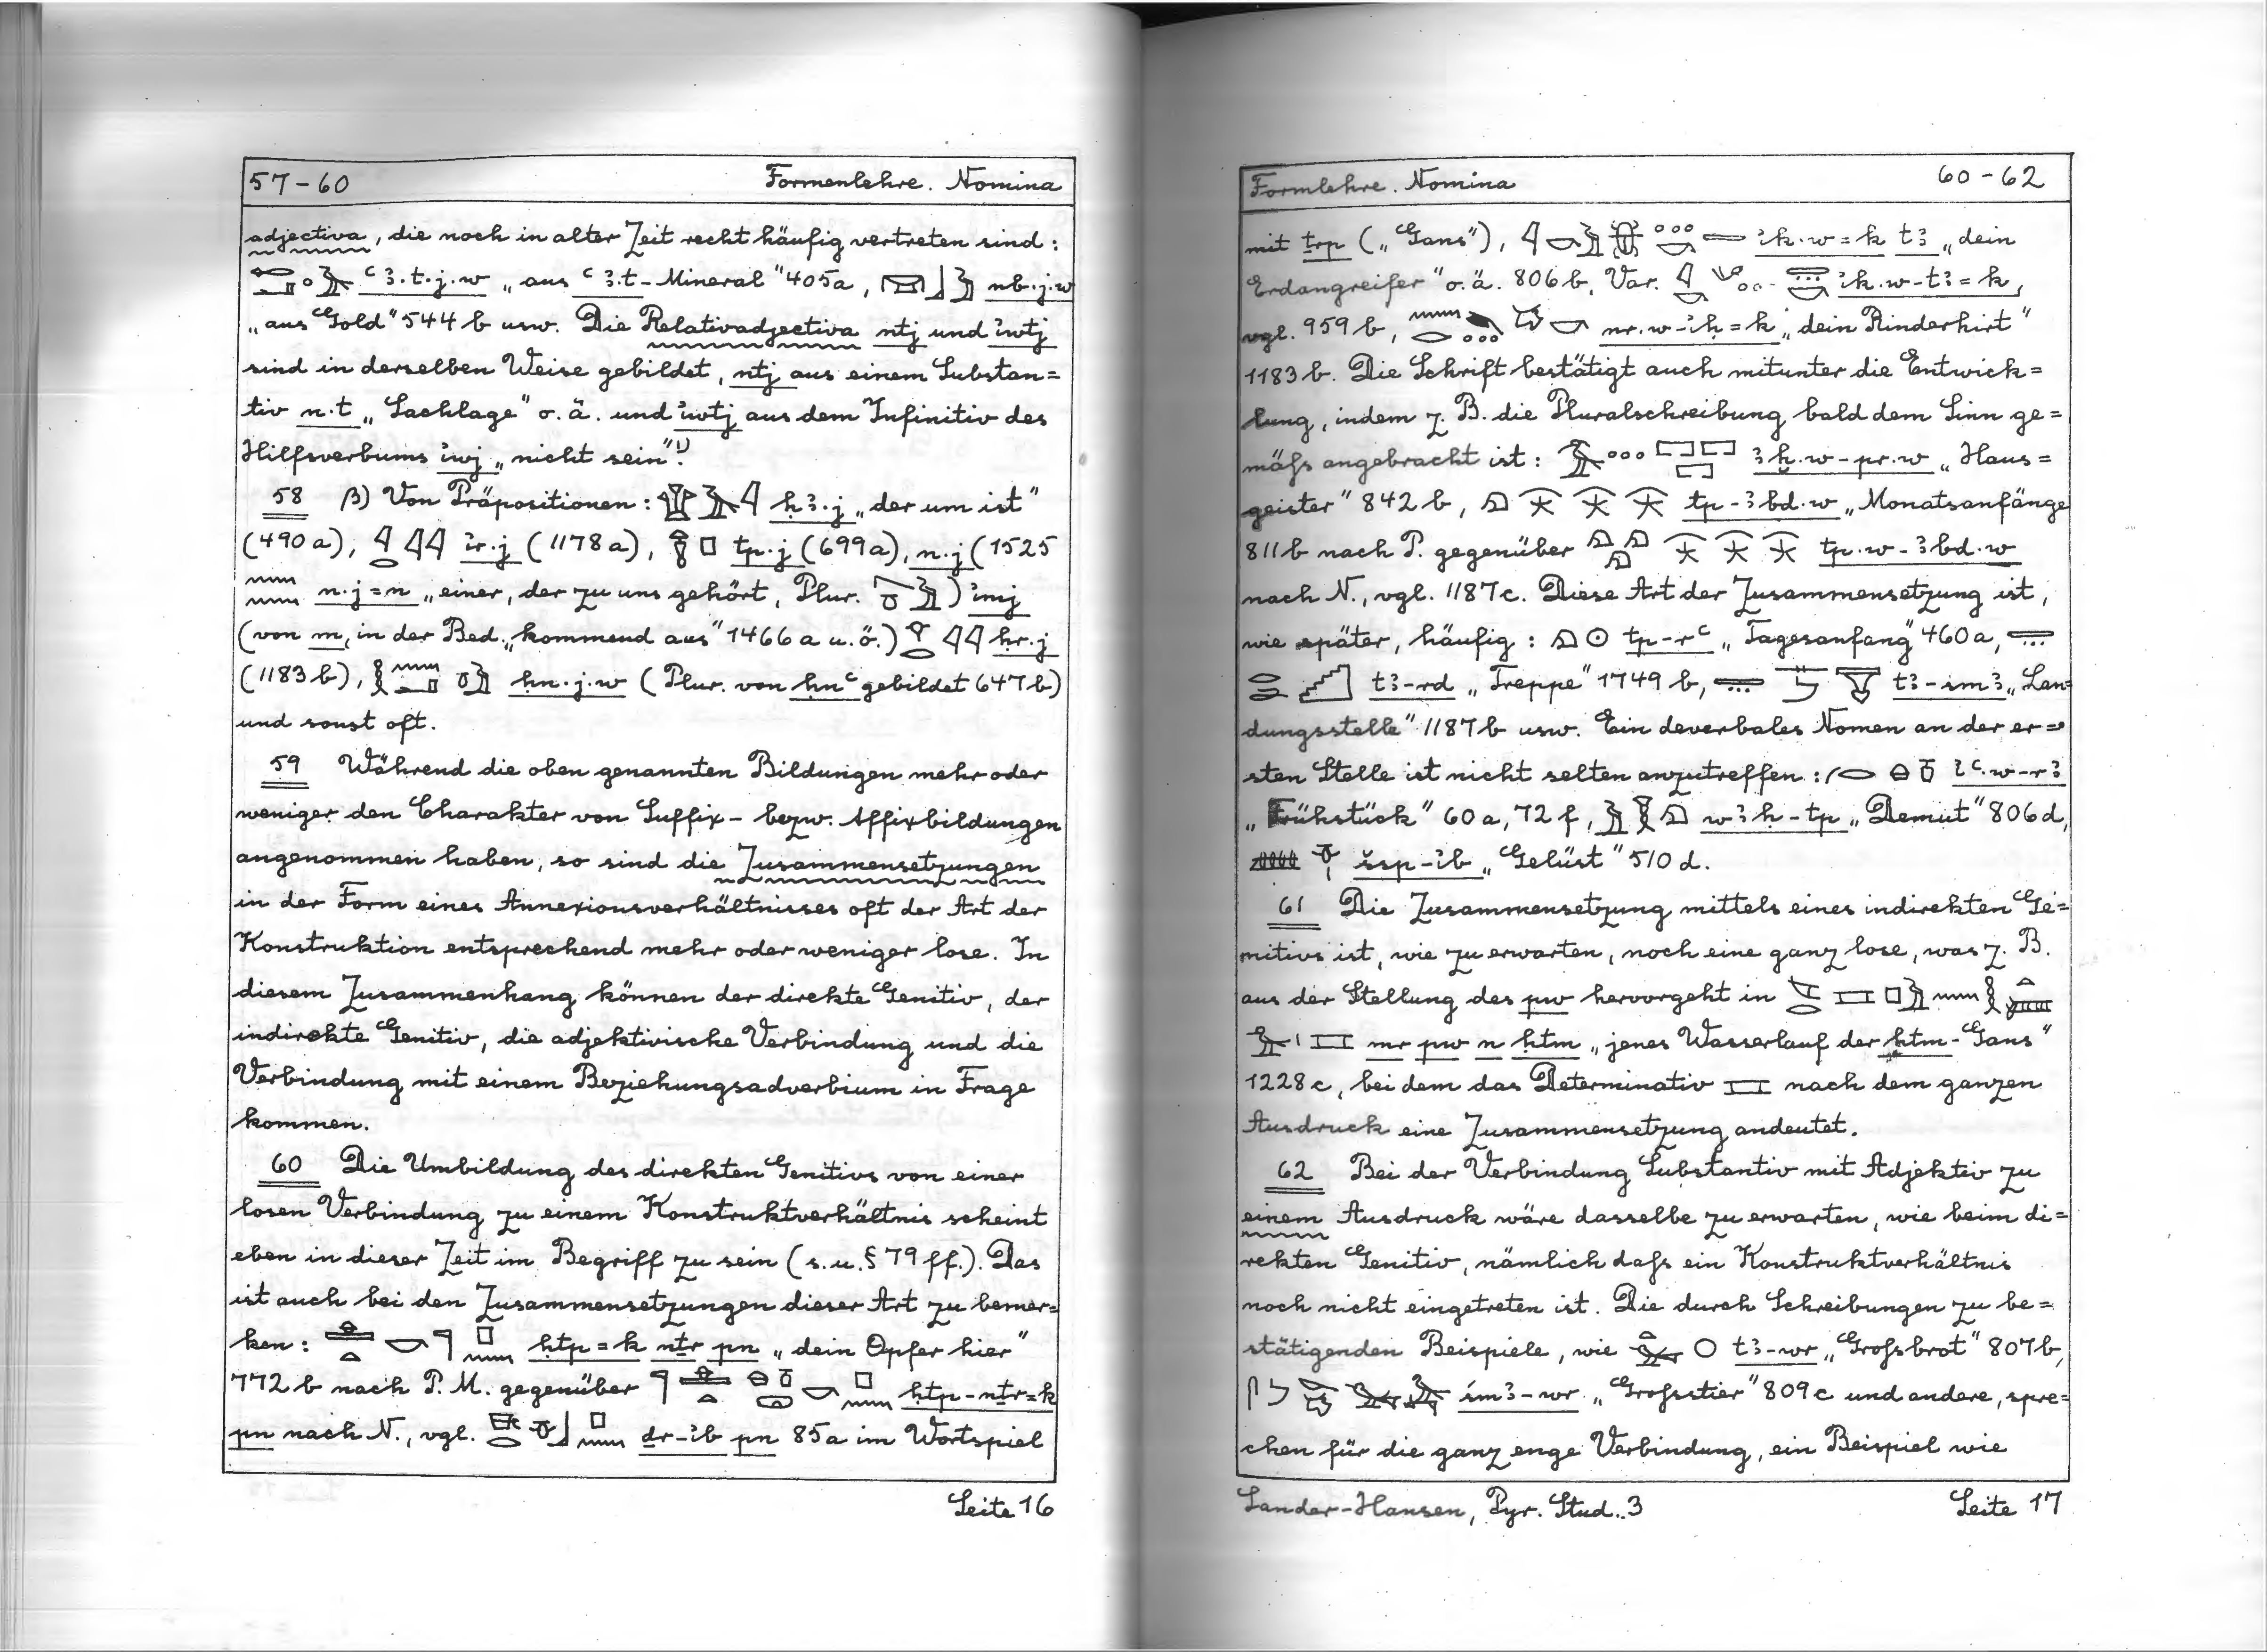 57-60 Formenlehre. Nomina
adjectiva, die noch in alter Zeit recht häufig vertreten sind:
ꜥꜣ.t.j.w „aus ꜥꜣ.t-Mineral" 405a, nb.j.w
„aus Gold" 544 b usw. Die Relativadjectiva ntj und ꞽwtj
sind in derselben Weise gebildet, ntj aus einem Substan=
tiv n.t „Sachlage" o.ä. und ꞽwtj aus dem Infinitiv des
Hilfsverbums ꞽwj „nicht sein".¹)
58 β) Von Präpositionen: ḥꜣ.j „der um ist"
(490a), ꞽr.j (1178a), tp.j (699a), n.j (1525
n.j=n „einer, der zu uns gehört, Plur. ) ꞽmj
(von m, in der Bed. „kommend aus" 1466a u.ö.) ḥr.j
(1183b), ḥn.j.w (Plur. von ḥnꜥ gebildet 647b)
und sonst oft.
59 Während die oben genannten Bildungen mehr oder
weniger den Charakter von Suffix- bezw. Affixbildungen
angenommen haben, so sind die Zusammensetzungen
in der Form eines Annexionsverhältnisses oft der Art der
Konstruktion entsprechend mehr oder weniger lose. In
diesem Zusammenhang können der direkte Genitiv, der
indirekte Genitiv, die adjektivische Verbindung und die
Verbindung mit einem Beziehungsadverbium in Frage
kommen.
60 Die Umbildung des direkten Genitivs von einer
losen Verbindung zu einem Konstruktverhältnis scheint
eben in dieser Zeit im Begriff zu sein (s.u. § 79 ff.). Das
ist auch bei den Zusammensetzungen dieser Art zu bemer=
ken: ḥtp=k nṯr pn „dein Opfer hier"
772 b nach P. M. gegenüber ḥtp-nṯr=k
pn nach N., vgl. ḏr-ꞽb pn 85a im Wortspiel
Seite 16
Formlehre. Nomina 60-62
mit ṯrp („Gans"), ꞽk.w=k tꜣ „dein
Erdangreifer" o.ä. 806 b, Var. ꞽk.w-tꜣ=k,
vgl. 959 b, nr.w-ꞽḥ=k „dein Rinderhirt"
1183 b. Die Schrift bestätigt auch mitunter die Entwick=
lung, indem z. B. die Pluralschreibung bald dem Sinn ge=
mäſs angebracht ist: ꜣḫ.w-pr.w „Haus=
geister" 842 b, tp-ꜣbd.w „Monatsanfänge
811b nach P. gegenüber tp.w-ꜣbd.w
nach N., vgl. 1187c. Diese Art der Zusammensetzung ist,
wie später, häufig: tp-rꜥ „Tagesanfang" 460a,
tꜣ-rd „Treppe" 1749 b, tꜣ-smꜣ „Lan=
dungsstelle" 1187 b usw. Ein deverbales Nomen an der er=
sten Stelle ist nicht selten anzutreffen: ꞽꜥ.w-rꜣ
„Frühstück" 60a, 72 f, wꜣḥ-tp „Demut" 806d,
šsp-ꞽb „Gelüst" 510 d.
61 Die Zusammensetzung mittels eines indirekten Ge=
mitivs ist, wie zu erwarten, noch eine ganz lose, was z. B.
aus der Stellung des pw hervorgeht in
mr pw n ḥtm „jenes Wasserlauf der ḥtm-Gans"
1228c, bei dem das Determinativ nach dem ganzen
Ausdruck eine Zusammensetzung andeutet.
62 Bei der Verbindung Substantiv mit Adjektiv zu
einem Ausdruck wäre dasselbe zu erwarten, wie beim di=
rekten Genitiv, nämlich daſs ein Konstruktverhältnis
noch nicht eingetreten ist. Die durch Schreibungen zu be=
stätigenden Beispiele, wie tꜣ-wr „Groſsbrot" 807b,
śmꜣ-wr „Grossstier" 809c und andere, spre=
chen für die ganz enge Verbindung, ein Beispiel wie
Sander-Hansen, Pyr. Stud. 3 Seite 17